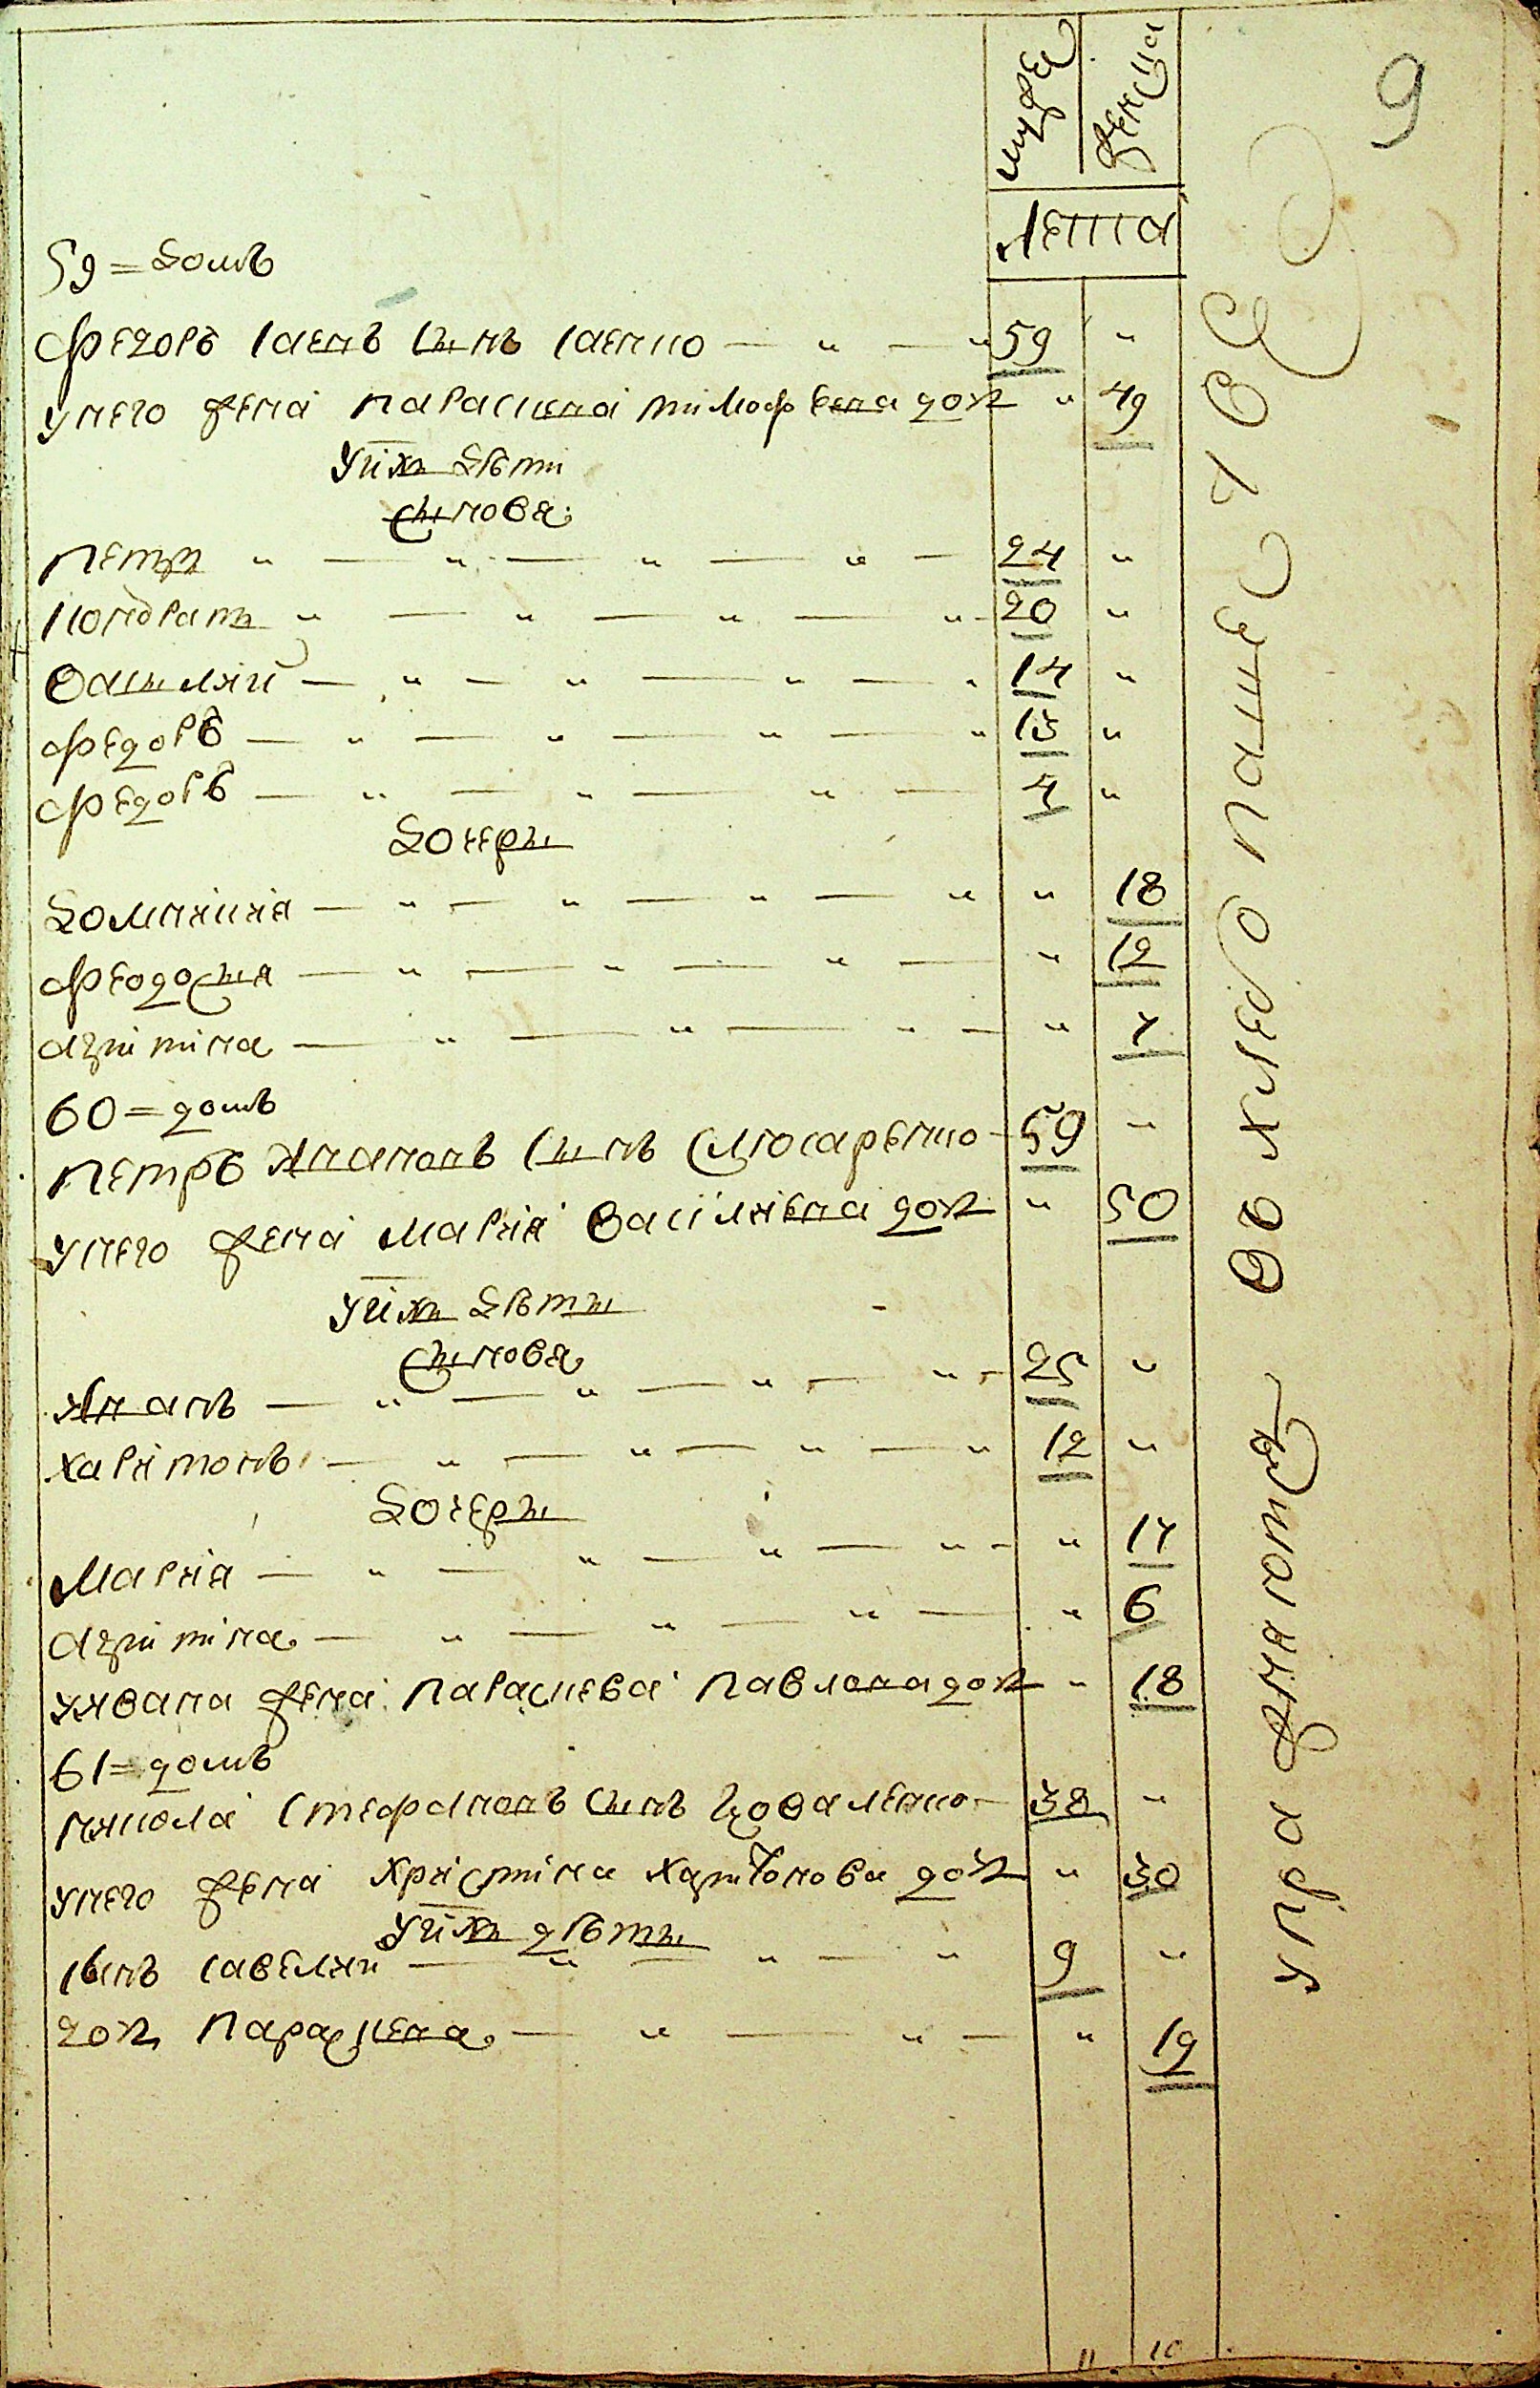 9
мужеска
женска
Лета
59 = домъ
Федоръ Савинъ сынъ Савенко 59 "
унего жена параскева тимофѣева доч " 49
У ихъ дѣти
сынова
петръ " " " " 24 "
кондратъ " " " " 20 "
василий " " " " 14 "
федоръ " " " " 13 "
федоръ " " " 4 "
дочери
домникия " " " " " 18
феодосия " " " " 12
агрипина " " " " 7
60 = домъ
петръ Ивановъ сынъ слюсаренко 59 "
унего жена мария василиева доч " 50
У ихъ дѣты
сынова
Иванъ " " " " 25 "
харитонъ " " " " 12 "
дочеры
мария " " " " " 17
агрипина " " " " 6
у ивана жена параскева павлова доч " 18
61 = домъ
никола стефановъ сынъ коваленко 38 "
унего жена христина харитонова доч " 30
У ихъ дѣты
сынъ савелий " " " 9 "
доч параскева " " " 19
упражняются
во хлебопашестве
11 10